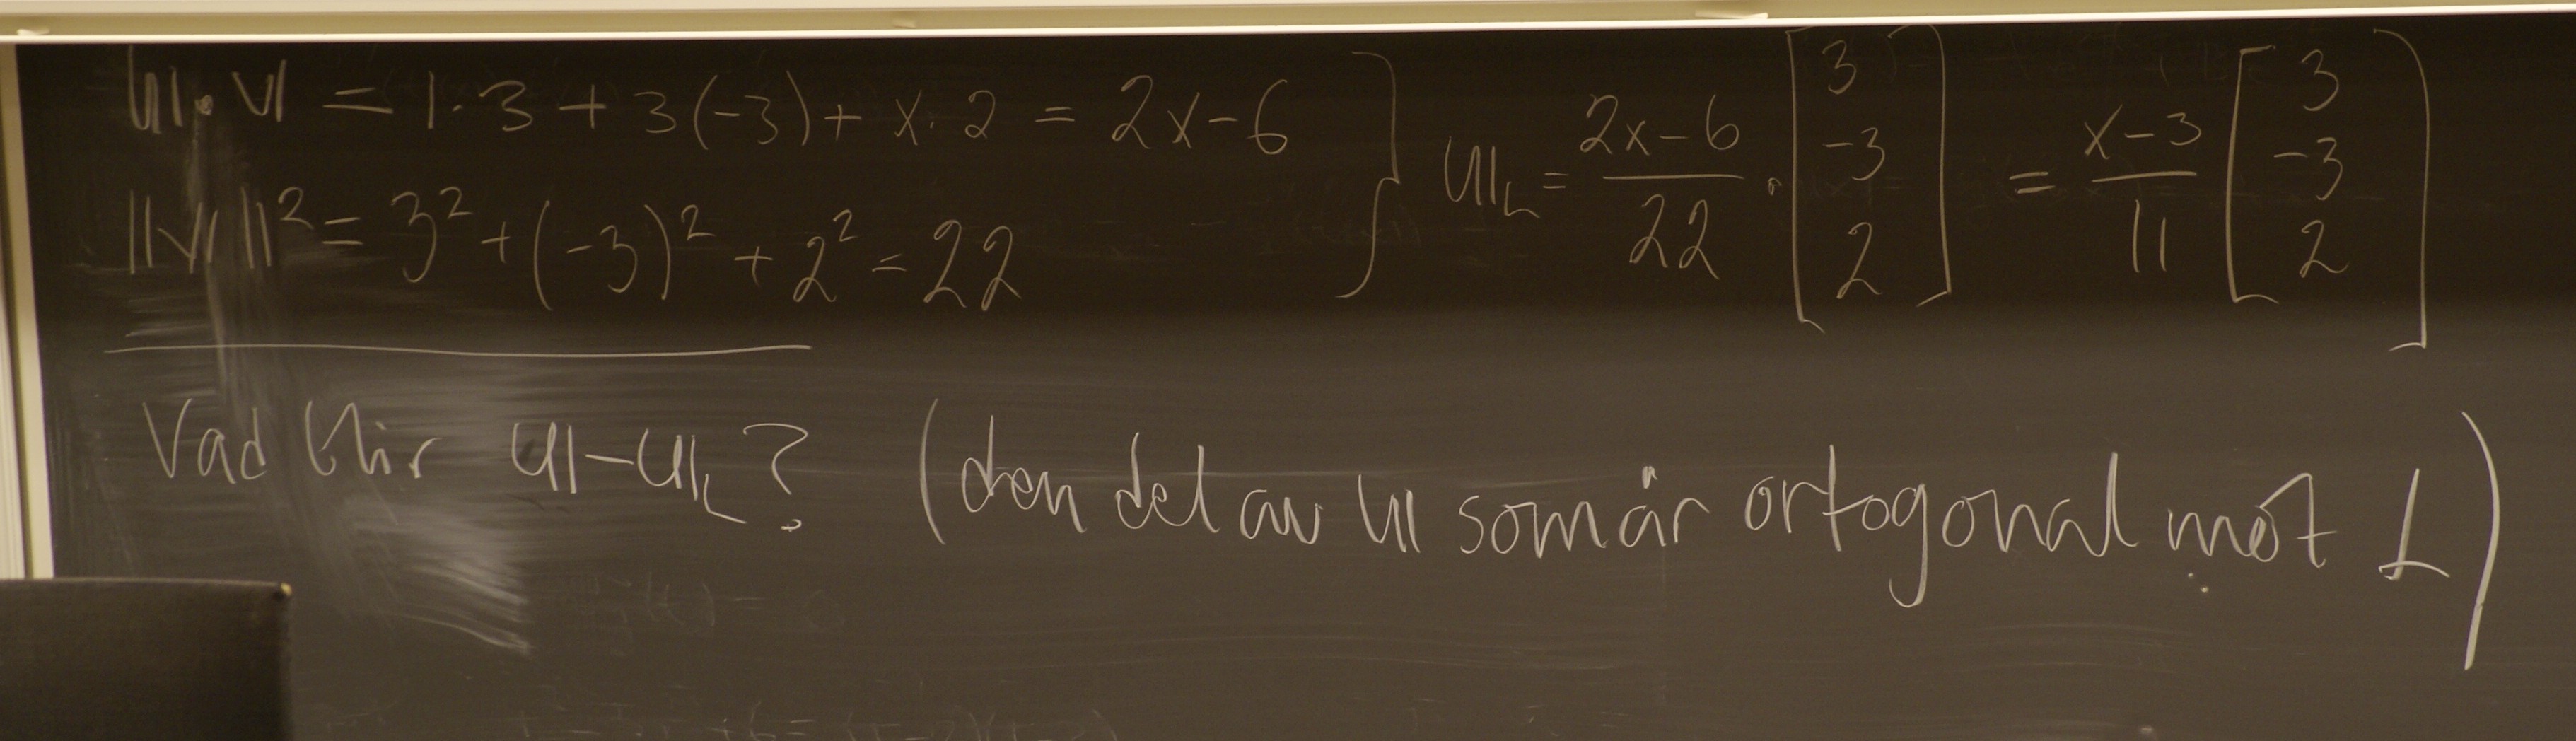 u·v = 1·3 + 3(-3) + x·2 = 2x-6
||v||² = 3² + (-3)² + 2² = 22
} u_L = (2x-6)/22 · [3 -3 2] = (x-3)/11 [3 -3 2]
Vad blir u-u_L? (den del av u som är ortogonal mot L)